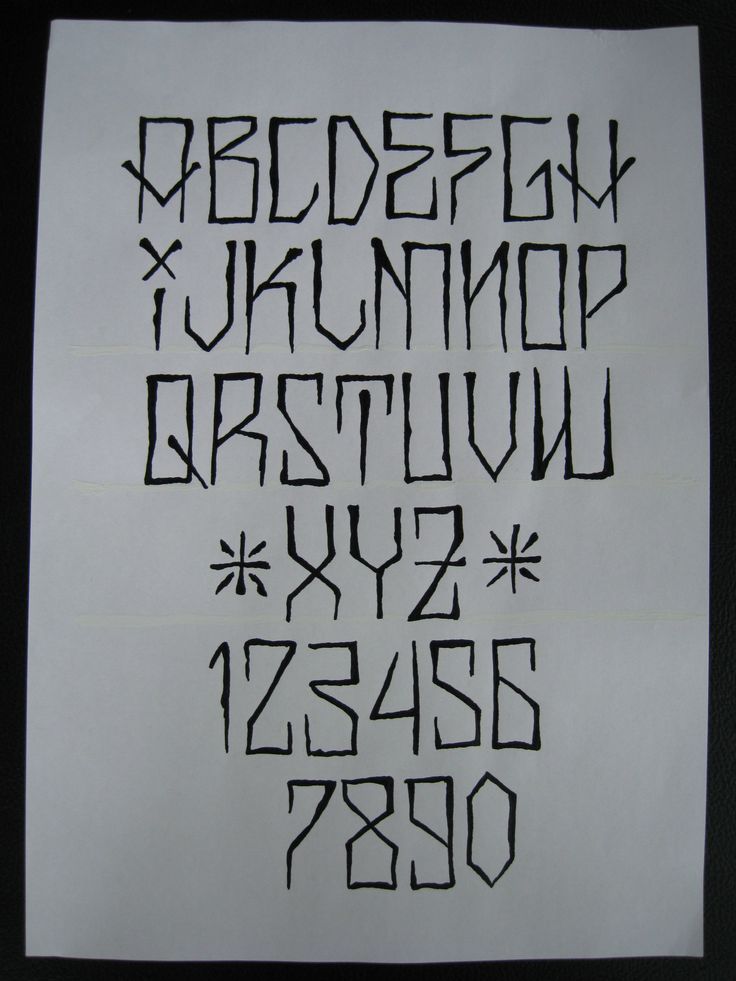 ABCDEFGH
iJKLMNOP
QRSTUVW
*XYZ*
123456
7890